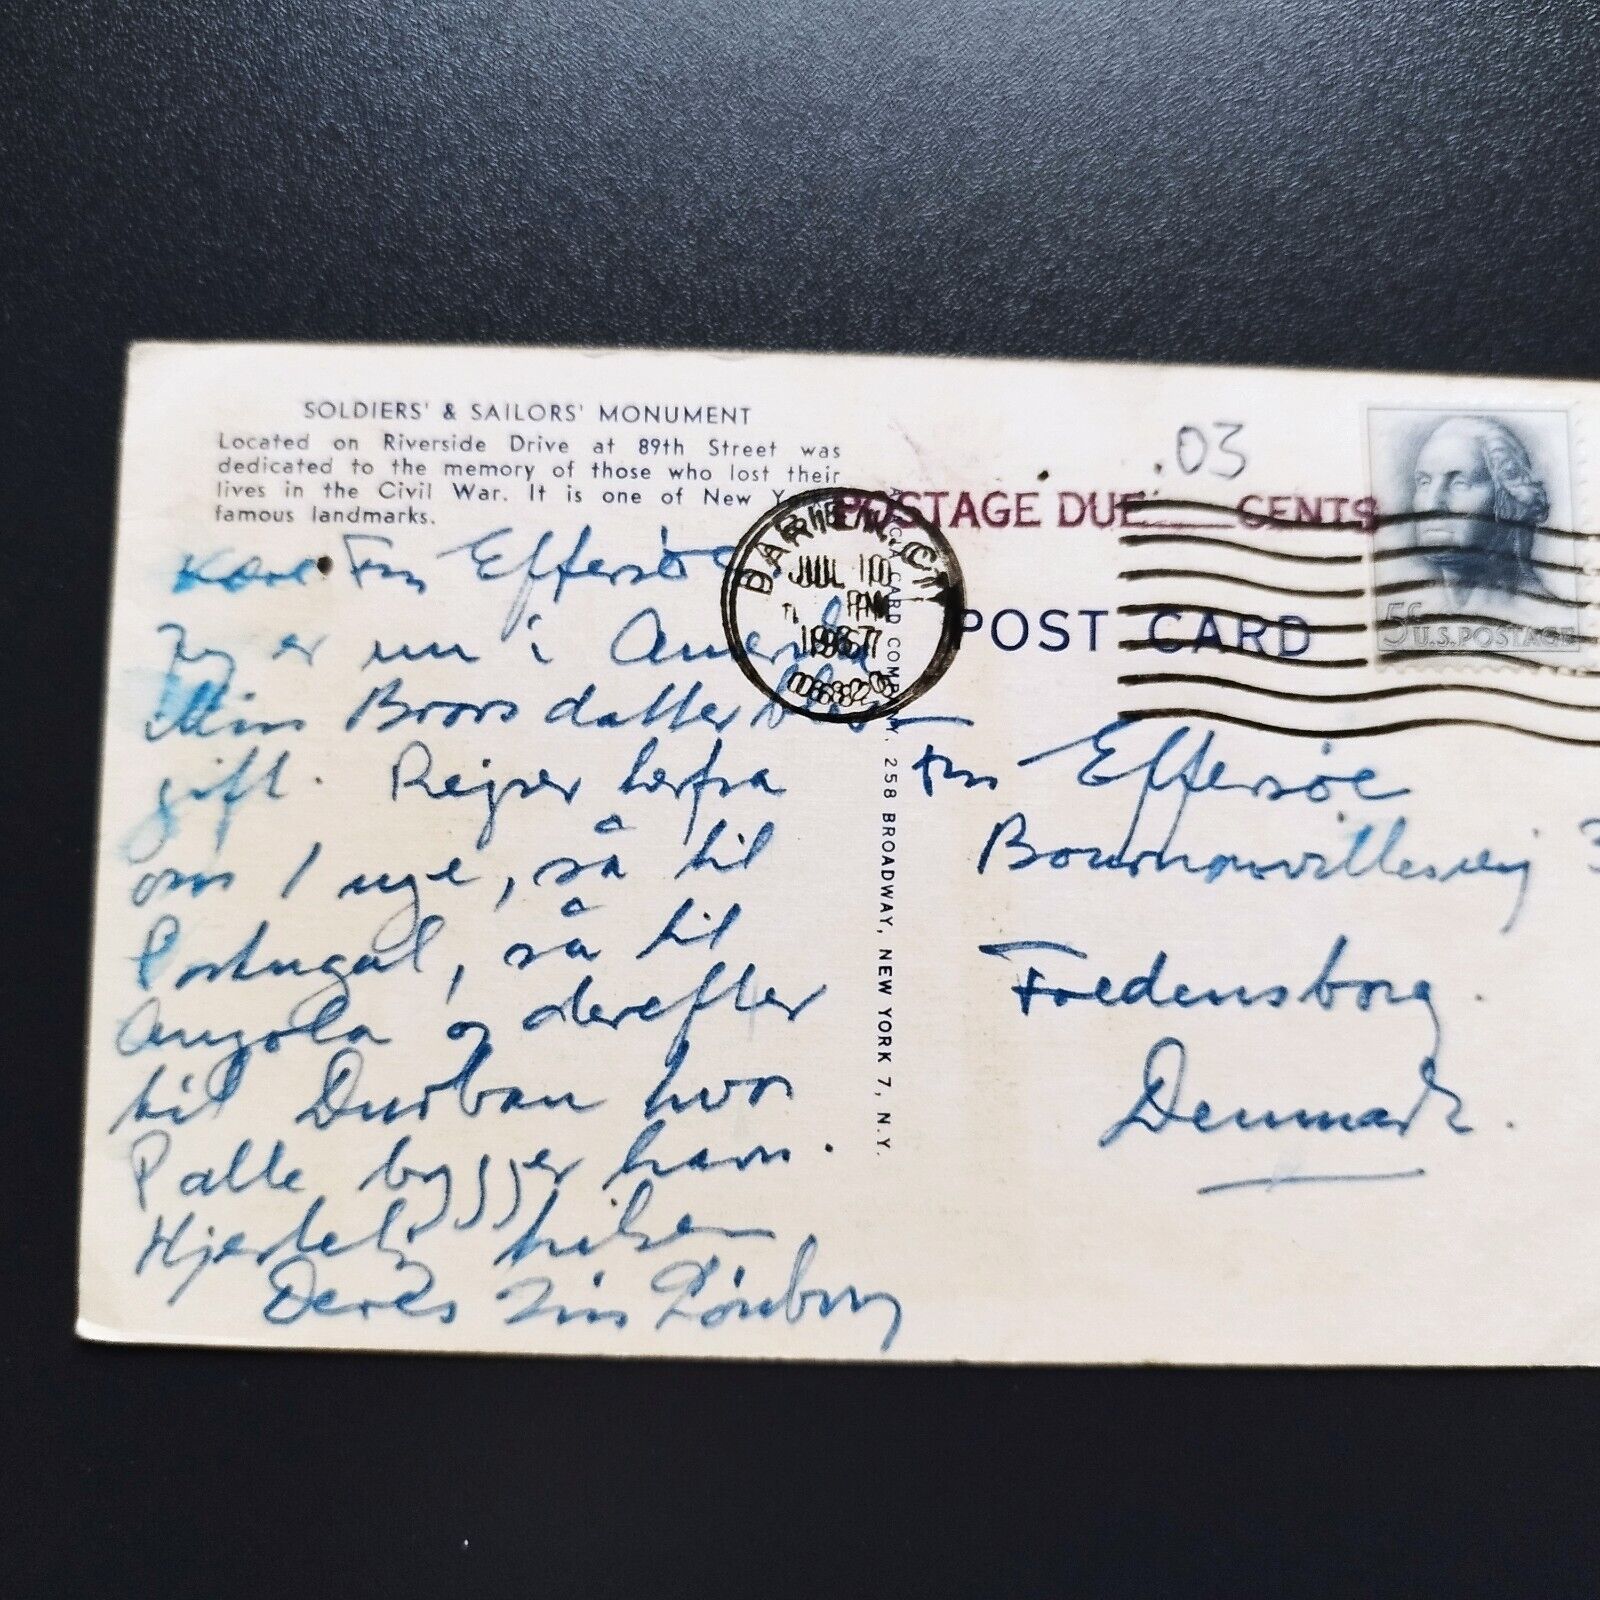 SOLDIERS' & SAILORS' MONUMENT
Located on Riverside Drive at 89th Street was
dedicated to the memory of those who lost their
lives in the Civil War. It is one of New
famous landmarks.
Kære Fru Effersøe
Jeg er nu i Amerika
Min Brors datter blev
gift. Rejser herfra
om 1 uge, så til
Portugal, så til
Angola og derefter
til Durban hvor
Palle bygger havn.
Hjertelig hilsen
Deres
.03
POSTAGE DUE CENTS
DARIEN, CT
JUL 10
PM
1967
06820
POST CARD
5¢ U.S. POSTAGE
CARD COMPANY, 258 BROADWAY, NEW YORK 7, N.Y.
Fru Effersøe
Bournonvillesvej
Fredensborg.
Denmark.